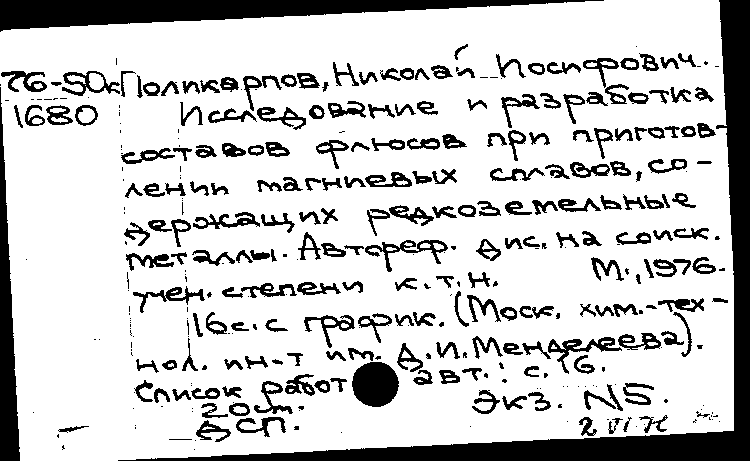 76-50к Поликарпов, Николай Иосифович.
1680 Исследование и разработка
составов флюсов при приготов-
лении магниевых сплавов, со-
держащих редкоземельные
металлы. Автореф. дис. на соиск.
учен. степени к.т.н. М., 1976.
16 с. с график. (Моск. хим.-тех-
нол. ин-т им. Д.И. Менделеева).
Список работ авт.: с. 16.
20 от. Экз. N5.
ДСП.